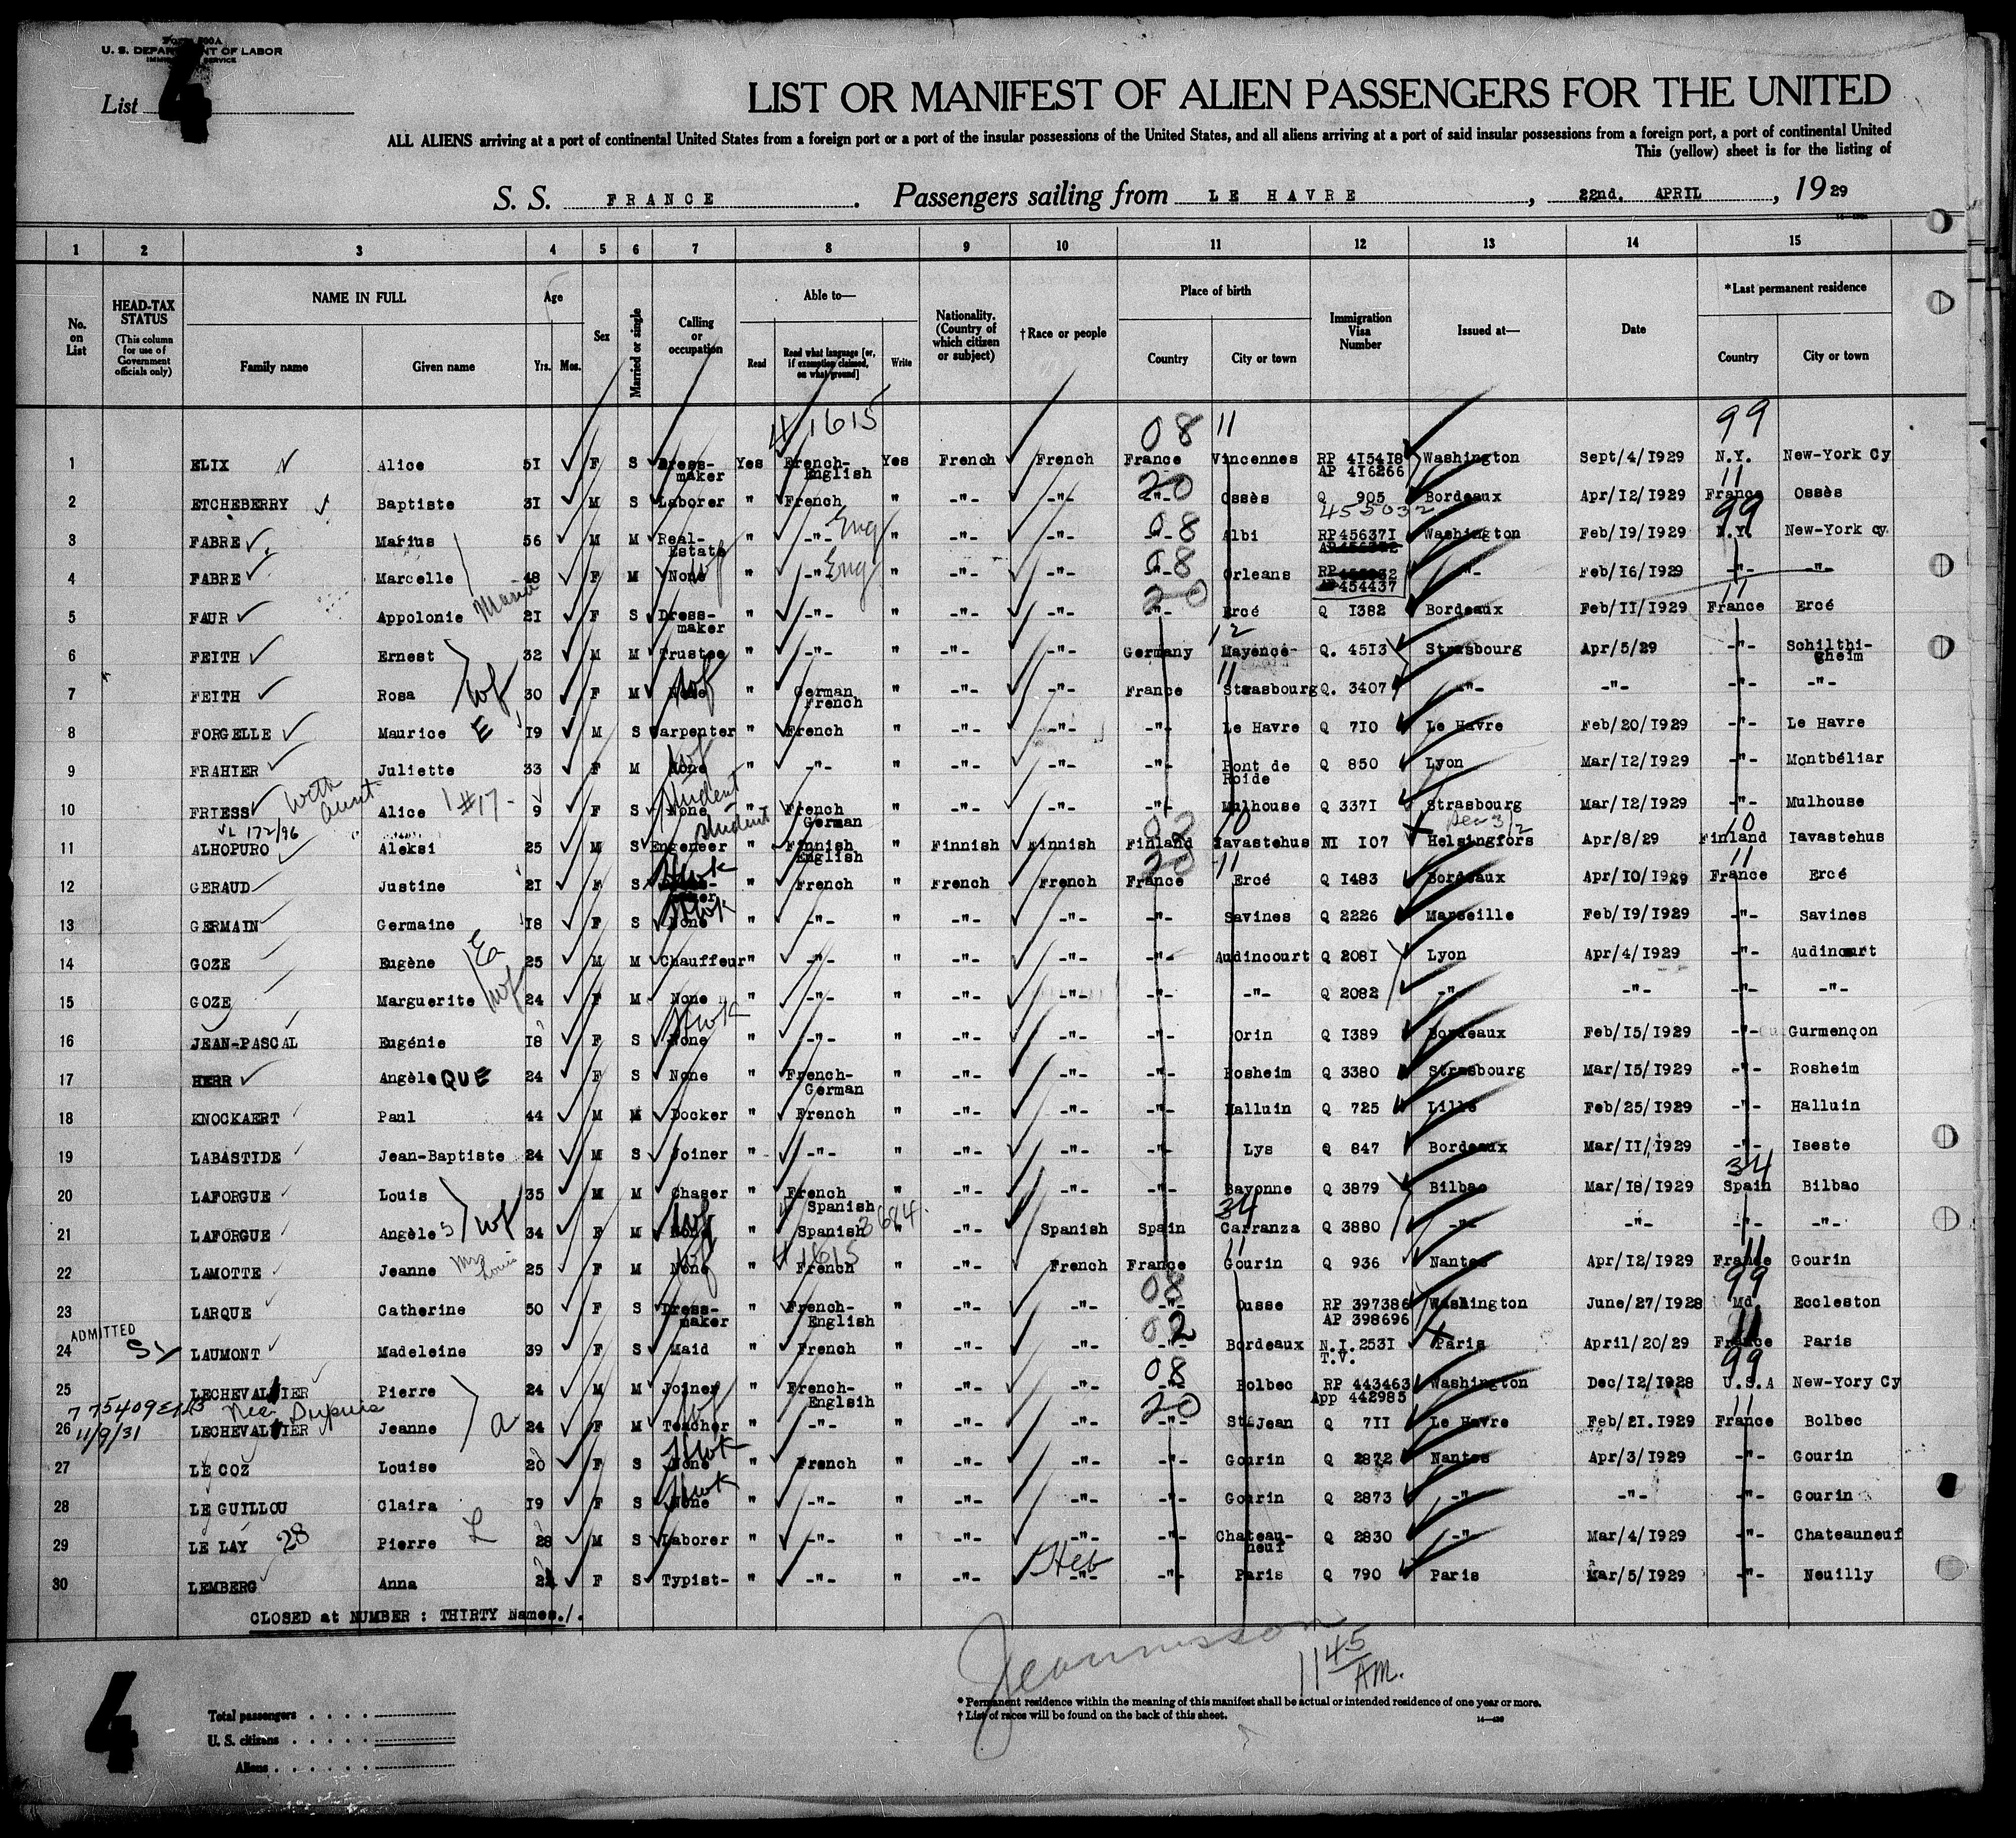 Form 500A
U. S. DEPARTMENT OF LABOR
IMMIGRATION SERVICE
List 4
LIST OR MANIFEST OF ALIEN PASSENGERS FOR THE UNITED
ALL ALIENS arriving at a port of continental United States from a foreign port or a port of the insular possessions of the United States, and all aliens arriving at a port of said insular possessions from a foreign port, a port of continental United
This (yellow) sheet is for the listing of
S. S. FRANCE. Passengers sailing from LE HAVRE, 22nd. APRIL, 1929
1 2 3 4 5 6 7 8 9 10 11 12 13 14 15
No. on List HEAD-TAX STATUS (This column for use of Government officials only) NAME IN FULL Family name Given name Age Yrs. Mos. Sex Married or single Calling or occupation Able to— Read Read what language [or, if exemption claimed, on what ground] Write Nationality. (Country of which citizen or subject) †Race or people Place of birth Country City or town Immigration Visa Number Issued at— Date *Last permanent residence Country City or town
4 1615 08 11 99
1 ELIX Alice 51 F S Dress-maker Yes French-English Yes French French France Vincennes RP 415418 AP 416266 Washington Sept/4/1929 N.Y. New-York Cy
20 11
2 ETCHEBERRY Baptiste 31 M S Laborer " French " -"- -"- -"- Ossès Q 905 Bordeaux Apr/12/1929 France Ossès
455032 99
3 FABRE Marius 56 M M Real-Estate " -"- Eng " -"- -"- -"- 08 Albi RP456371 Washington Feb/19/1929 N.Y. New-York cy.
4 FABRE Marcelle 48 F M None wf " -"- Eng " -"- -"- -"- 08 Orleans RP AP 454437 -"- Feb/16/1929 -"- -"-
Maria 20 11
5 FAUR Appolonie 21 F S Dress-maker " -"- " -"- -"- -"- Ercé Q 1382 Bordeaux Feb/11/1929 France Ercé
12
6 FEITH Ernest 32 M M Trustee " -"- " -"- -"- Germany Mayence- Q. 4513 Strasbourg Apr/5/29 -"- Schilthi-gheim
11
7 FEITH Rosa wf 30 F M None wf " German French " -"- -"- France Strasbourg Q. 3407 -"- -"- -"- -"-
8 FORGELLE Maurice E 19 M S Carpenter " French " -"- -"- -"- Le Havre Q 710 Le Havre Feb/20/1929 -"- Le Havre
9 FRAHIER Juliette 33 F M None wf " -"- " -"- -"- -"- Pont de Roide Q 850 Lyon Mar/12/1929 -"- Montbéliar
10 FRIESS with aunt Alice #17- 9 F S None student " French German " -"- -"- -"- Mulhouse Q 3371 Strasbourg Mar/12/1929 -"- Mulhouse
VL 172/96 student 02 10 Sec 3/2 10
11 ALHOPURO Aleksi 25 M S Engeneer " Finnish English " Finnish Finnish Finland Tavastehus NI 107 Helsingfors Apr/8/29 Finland Tavastehus
20 11 11
12 GERAUD Justine 21 F S Hwk " French " French French France Ercé Q 1483 Bordeaux Apr/10/1929 France Ercé
13 GERMAIN Germaine 18 F S None Hwk " -"- " -"- -"- -"- Savines Q 2226 Marseille Feb/19/1929 -"- Savines
14 GOZE Eugène 25 M M Chauffeur " -"- " -"- -"- -"- Audincourt Q 2081 Lyon Apr/4/1929 -"- Audincourt
15 GOZE Marguerite wf 24 F M None " -"- " -"- -"- -"- -"- Q 2082 -"- -"- -"- -"-
16 JEAN-PASCAL Eugénie 18 F S None Hwk " -"- " -"- -"- -"- Orin Q 1389 Bordeaux Feb/15/1929 -"- Gurmençon
17 HERR AngèleQUE 24 F S None " French-German " -"- -"- -"- Rosheim Q 3380 Strasbourg Mar/15/1929 -"- Rosheim
18 KNOCKAERT Paul 44 M M Docker " French " -"- -"- -"- Halluin Q 725 Lille Feb/25/1929 -"- Halluin
19 LABASTIDE Jean-Baptiste 24 M S Joiner " -"- " -"- -"- -"- Lys Q 847 Bordeaux Mar/11/1929 -"- Iseste
34
20 LAFORGUE Louis 35 M M Chaser " French Spanish " -"- -"- -"- Bayonne Q 3879 Bilbao Mar/18/1929 Spain Bilbao
34
21 LAFORGUE Angèles wf 34 F M None wf " Spanish 3684 " -"- Spanish Spain Carranza Q 3880 -"- -"- -"- -"-
4 1615 11 11
22 LAMOTTE Jeanne Mrs Louis 25 F M None wf " French " -"- French France Gourin Q 936 Nantes Apr/12/1929 France Gourin
08 99
23 LARQUE Catherine 50 F S Dress-maker " French-English " -"- -"- -"- Ousse RP 397386 AP 398696 Washington June/27/1928 Md. Eccleston
ADMITTED 02 11
24 LAUMONT Madeleine 39 F S Maid " French " -"- -"- -"- Bordeaux N.I. 2531 T.V. Paris April/20/29 France Paris
08 99
25 LECHEVALLIER Pierre 24 M M Joiner " French-Englsih " -"- -"- -"- Bolbec RP 443463 App 442985 Washington Dec/12/1928 U.S.A New-Yory Cy
7 75409 nee Dupuis 20 11
26 11/9/31 LECHEVALLIER Jeanne a 24 F M Teacher wf " -"- " -"- -"- -"- Ste Jean Q 711 Le Havre Feb/21.1929 France Bolbec
27 LE COZ Louise 20 F S None Hwk " French " -"- -"- -"- Gourin Q 2872 Nantes Apr/3/1929 -"- Gourin
28 LE GUILLOU Claira 19 F S None Hwk " -"- " -"- -"- -"- Gourin Q 2873 -"- -"- -"- Gourin
29 LE LAY 28 Pierre L 28 M S Laborer " -"- " -"- -"- -"- Chateau-neuf Q 2830 -"- Mar/4/1929 -"- Chateauneuf
30 LEMBERG Anna F S Typist- " -"- " -"- Heb -"- -"- Paris Q 790 Paris Mar/5/1929 -"- Neuilly
CLOSED at NUMBER : THIRTY Names./.
11 45/AM.
4
* Permanent residence within the meaning of this manifest shall be actual or intended residence of one year or more.
† List of races will be found on the back of this sheet.
Total passengers . . . .
U. S. citizens . . . . .
Aliens . . . . . .